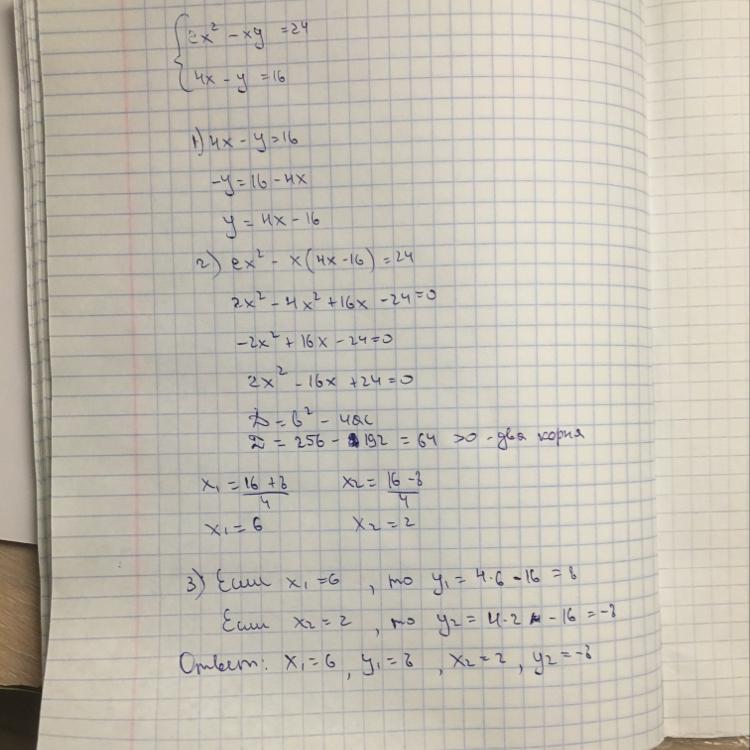 {2x² - xy = 24
4x - y = 16
1) 4x - y = 16
-y = 16 - 4x
y = 4x - 16
2) 2x² - x(4x - 16) = 24
2x² - 4x² + 16x - 24 = 0
-2x² + 16x - 24 = 0
2x² - 16x + 24 = 0
D = b² - 4ac
D = 256 - 192 = 64 >0 - два корня
x₁ = (16 + 8)/4 x₂ = (16 - 8)/4
x₁ = 6 x₂ = 2
3) Если x₁ = 6 , то y₁ = 4·6 - 16 = 8
Если x₂ = 2 , то y₂ = 4·2 - 16 = -8
Ответ: x₁ = 6 , y₁ = 8 , x₂ = 2 , y₂ = -8